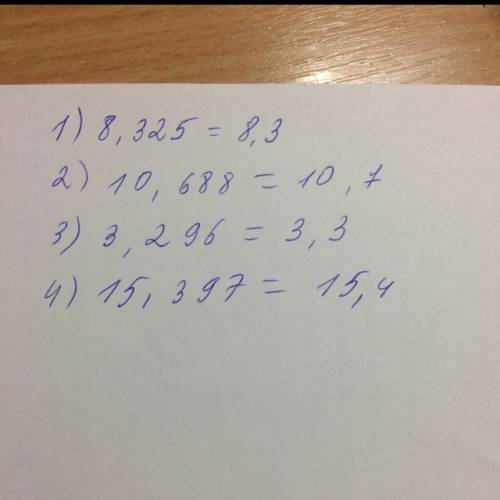 1) 8,325 = 8,3
2) 10,688 = 10,7
3) 3,296 = 3,3
4) 15,397 = 15,4